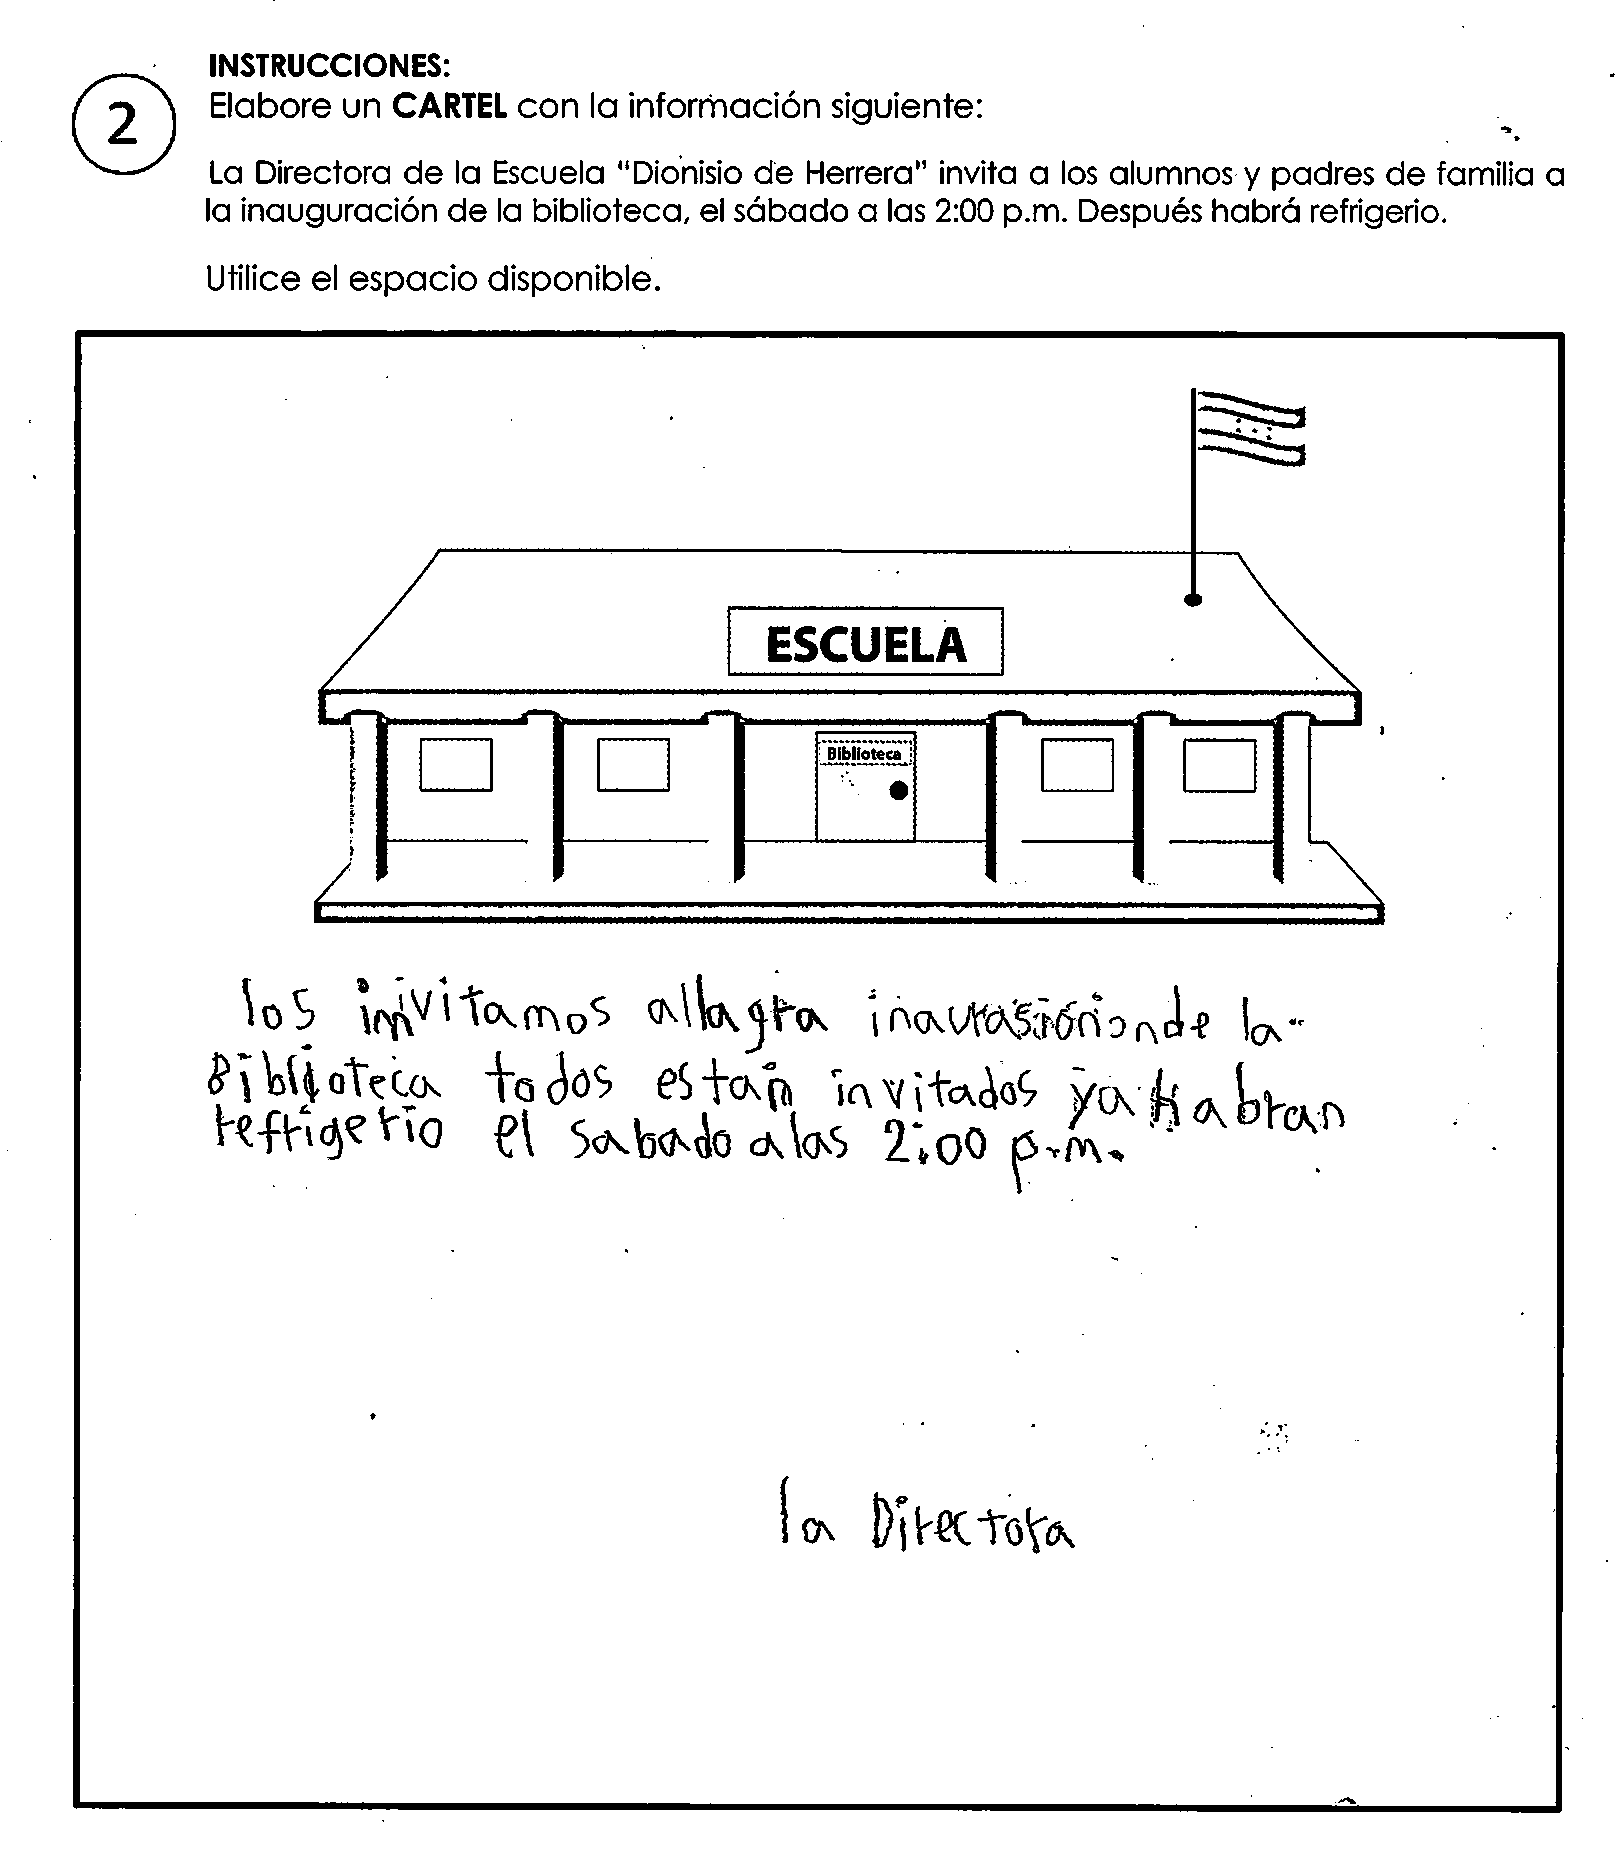 INSTRUCCIONES:
2
Elabore un CARTEL con la información siguiente:
La Directora de la Escuela "Dionisio de Herrera" invita a los alumnos y padres de familia a
la inauguración de la biblioteca, el sábado a las 2:00 p.m. Después habrá refrigerio.
Utilice el espacio disponible.
ESCUELA
Biblioteca
los invitamos allagra de la
Biblioteca todos estan invitados ya Habran
refrigerio el sabado a las 2:00 p.m.
la Directora